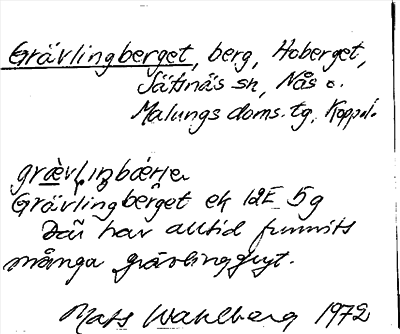 Grävlingberget, berg, Hoberget,
Jätnäs sn, Nås o.
Malungs doms. tg, Koppal.
grævliŋbærjə
Grävlingberget ek 12E 5g
Där har alltid funnits
många grävlinggryt.
Mats Wahlberg 1972